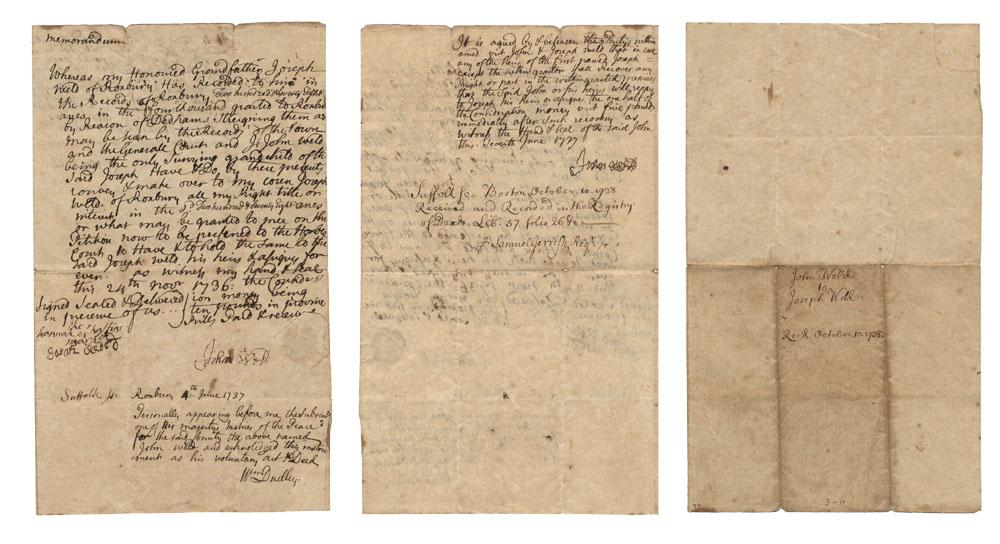 memorandum
Whereas my Honoured Grandfather Joseph
Weld of Roxbury Has Recorded to him in
the Records of Roxbury Two hundred & twenty Eight
acres in the four thousand granted to Roxbury
by Reason of Dedham Streigning them as
may be seen by the Records of the town
and the Generale Court and I John Weld
being the only Surviving grandchild of the
said Joseph Have & Do by these presents
convey & make over to my Cousn Joseph
Weld of Roxbury all my Right title or
interest in the sd Two hundred & twenty Eight acres
or what may be granted to mee on the
Petition now to be preferred to the Honble
Court to Have & to hold the Same to the
said Joseph Weld his heirs & assignes for
ever as witness my hand & seal
this 24th novr 1736 the Conside-
Signed Sealed & Delivered ion money being
in presence of us ten pounds in
Paid & receive
hannah
mark
John Weld
Suffolk ss. Roxbury 4th June 1737
Personally appearing before me the Subscriber
one of his majestys Justices of the Peace
for the said County the above named
John Weld and acknoledged this instru
ment as his voluntary act & Deed
Wm Dudley
It is agreed by & between the Partys within
named viz John & Joseph Weld that in case
any of the of the first named Joseph
except the within grantor shall Recover any
Right or part in the within granted premises
that the said John or his heirs will repay
to Joseph his heirs or assignes the one half of
the Consideration money viz five pounds
immediately after such recovery as
witness the Hand & Seal of the said John
this Seventh June 1737
John Weld
Suffolk ss. Boston October 10. 1738
Received and Recorded in the Registry
of Deeds Lib. 57 folio 26 &c
p Samuel Gerrish Regr
John Weld
to
Joseph Weld
Recd. October 10. 1738.
3-11